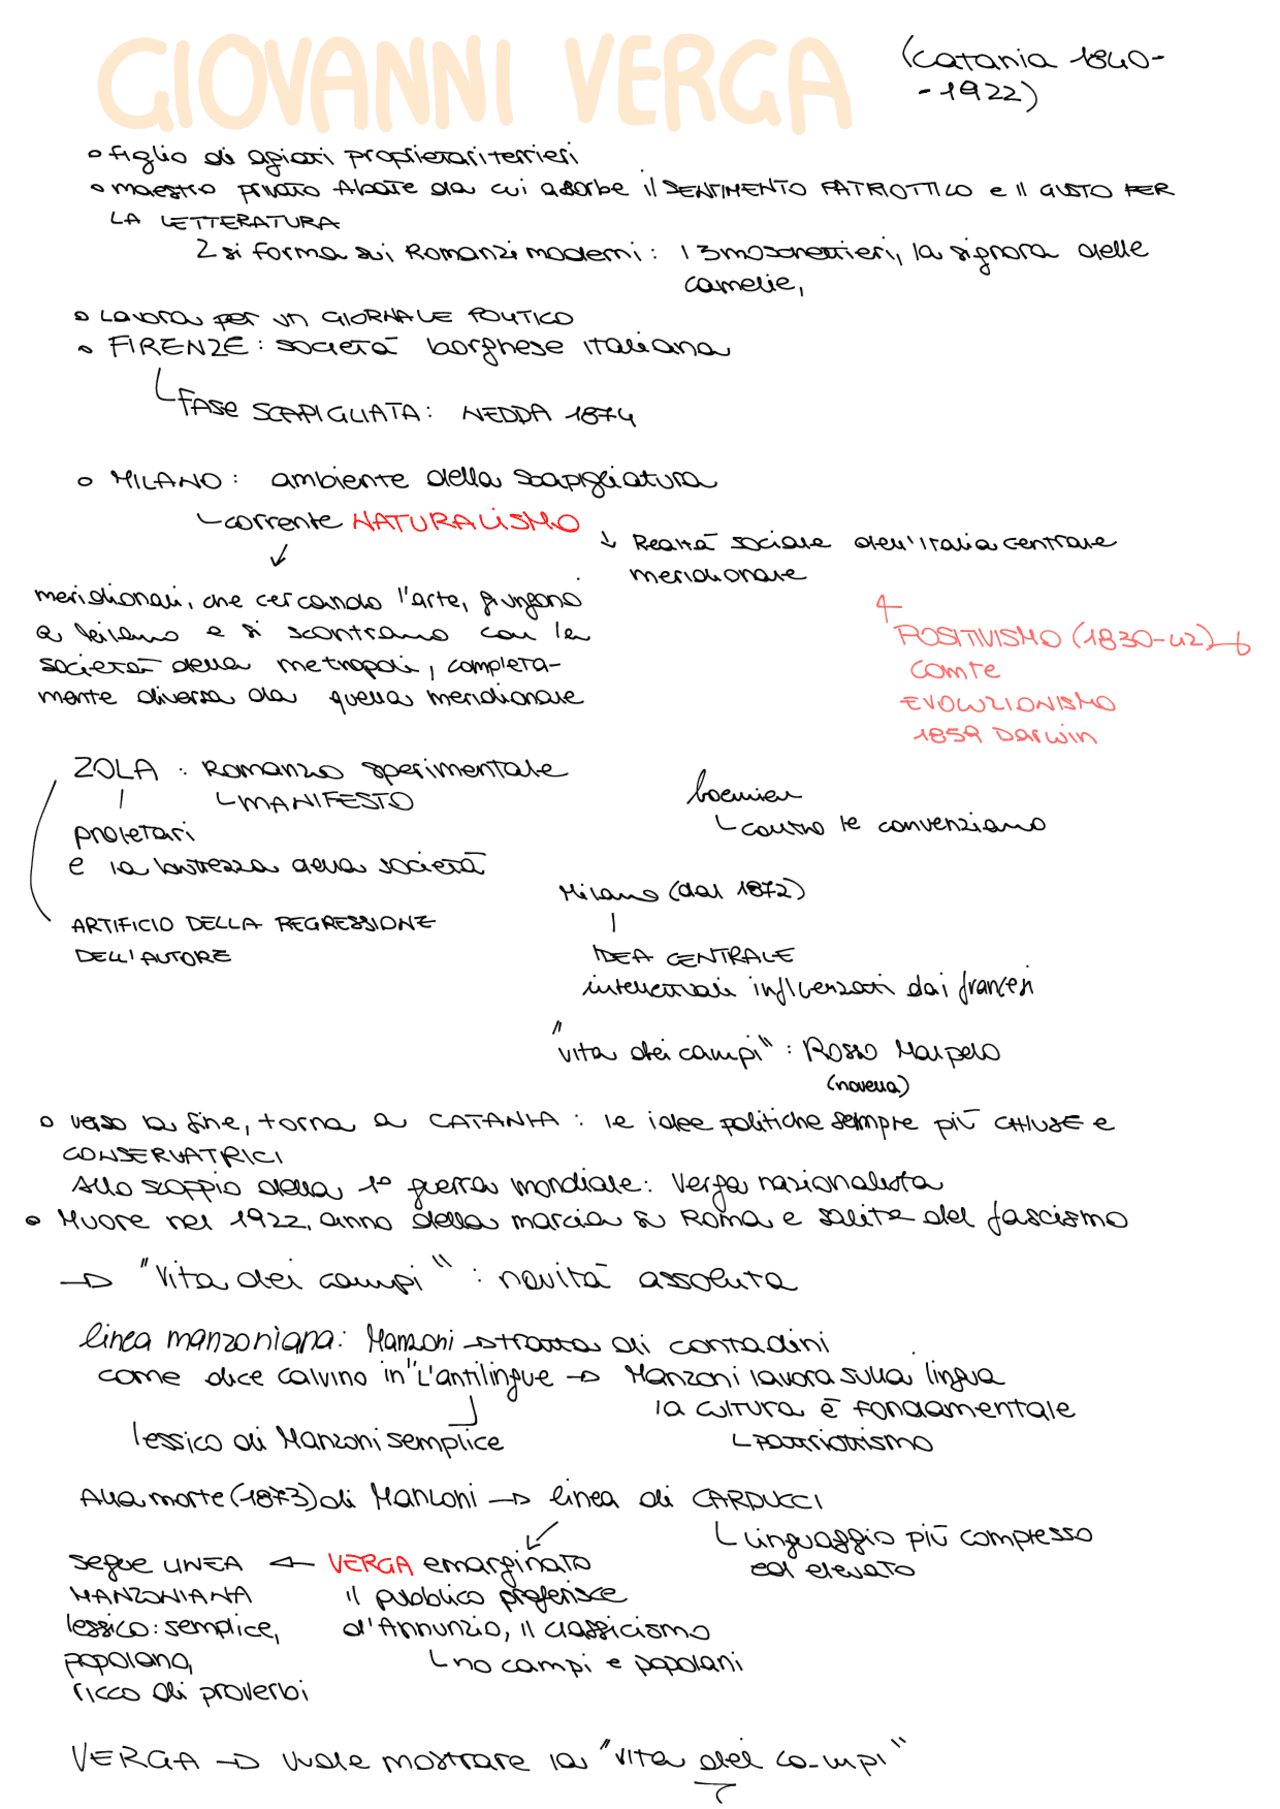 GIOVANNI VERGA
(Catania 1840-
-1922)
figlio di agiati proprietari terrieri
maestro privato Abate da cui assorbe il SENTIMENTO PATRIOTTICO e il GUSTO PER
LA LETTERATURA
si forma sui Romanzi moderni: I 3 moschettieri, la signora delle
camelie,
Lavora per un GIORNALE POLITICO
FIRENZE: società borghese italiana
FASE SCAPIGLIATA: NEDDA 1874
MILANO: ambiente della scapigliatura
corrente NATURALISMO
Realtà sociale dell'Italia centrale
meridionale
meridionali, che cercando l'arte, giungono
a Milano e si scontrano con la
società della metropoli, completa-
mente diversa da quella meridionale
POSITIVISMO (1830-42)
Comte
EVOLUZIONISMO
1859 Darwin
ZOLA: Romanzo sperimentale
MANIFESTO
proletari
e la bruttezza della società
boemien
contro le convenziano
ARTIFICIO DELLA REGRESSIONE
DELL'AUTORE
Milano (dal 1872)
IDEA CENTRALE
intellettuali influenzati dai francesi
"vita dei campi": Rosso Malpelo
(novella)
verso la fine, torna a CATANIA: le idee politiche sempre più CHIUSE e
CONSERVATRICI
Allo scoppio della 1° guerra mondiale: Verga nazionalista
Muore nel 1922, anno della marcia su Roma e salita del fascismo
→ "Vita dei campi": novità assoluta
linea manzoniana: Manzoni → tratta di contadini
come dice Calvino in "L'antilingue → Manzoni lavora sulla lingua
la cultura è fondamentale
lessico di Manzoni semplice
patriottismo
Alla morte (1873) di Manzoni → linea di CARDUCCI
linguaggio più complesso
ed elevato
segue LINEA ← VERGA emarginato
MANZONIANA il pubblico preferisce
lessico: semplice, d'Annunzio, il classicismo
popolano, no campi e popolani
ricco di proverbi
VERGA → vuole mostrare la "vita dei campi"